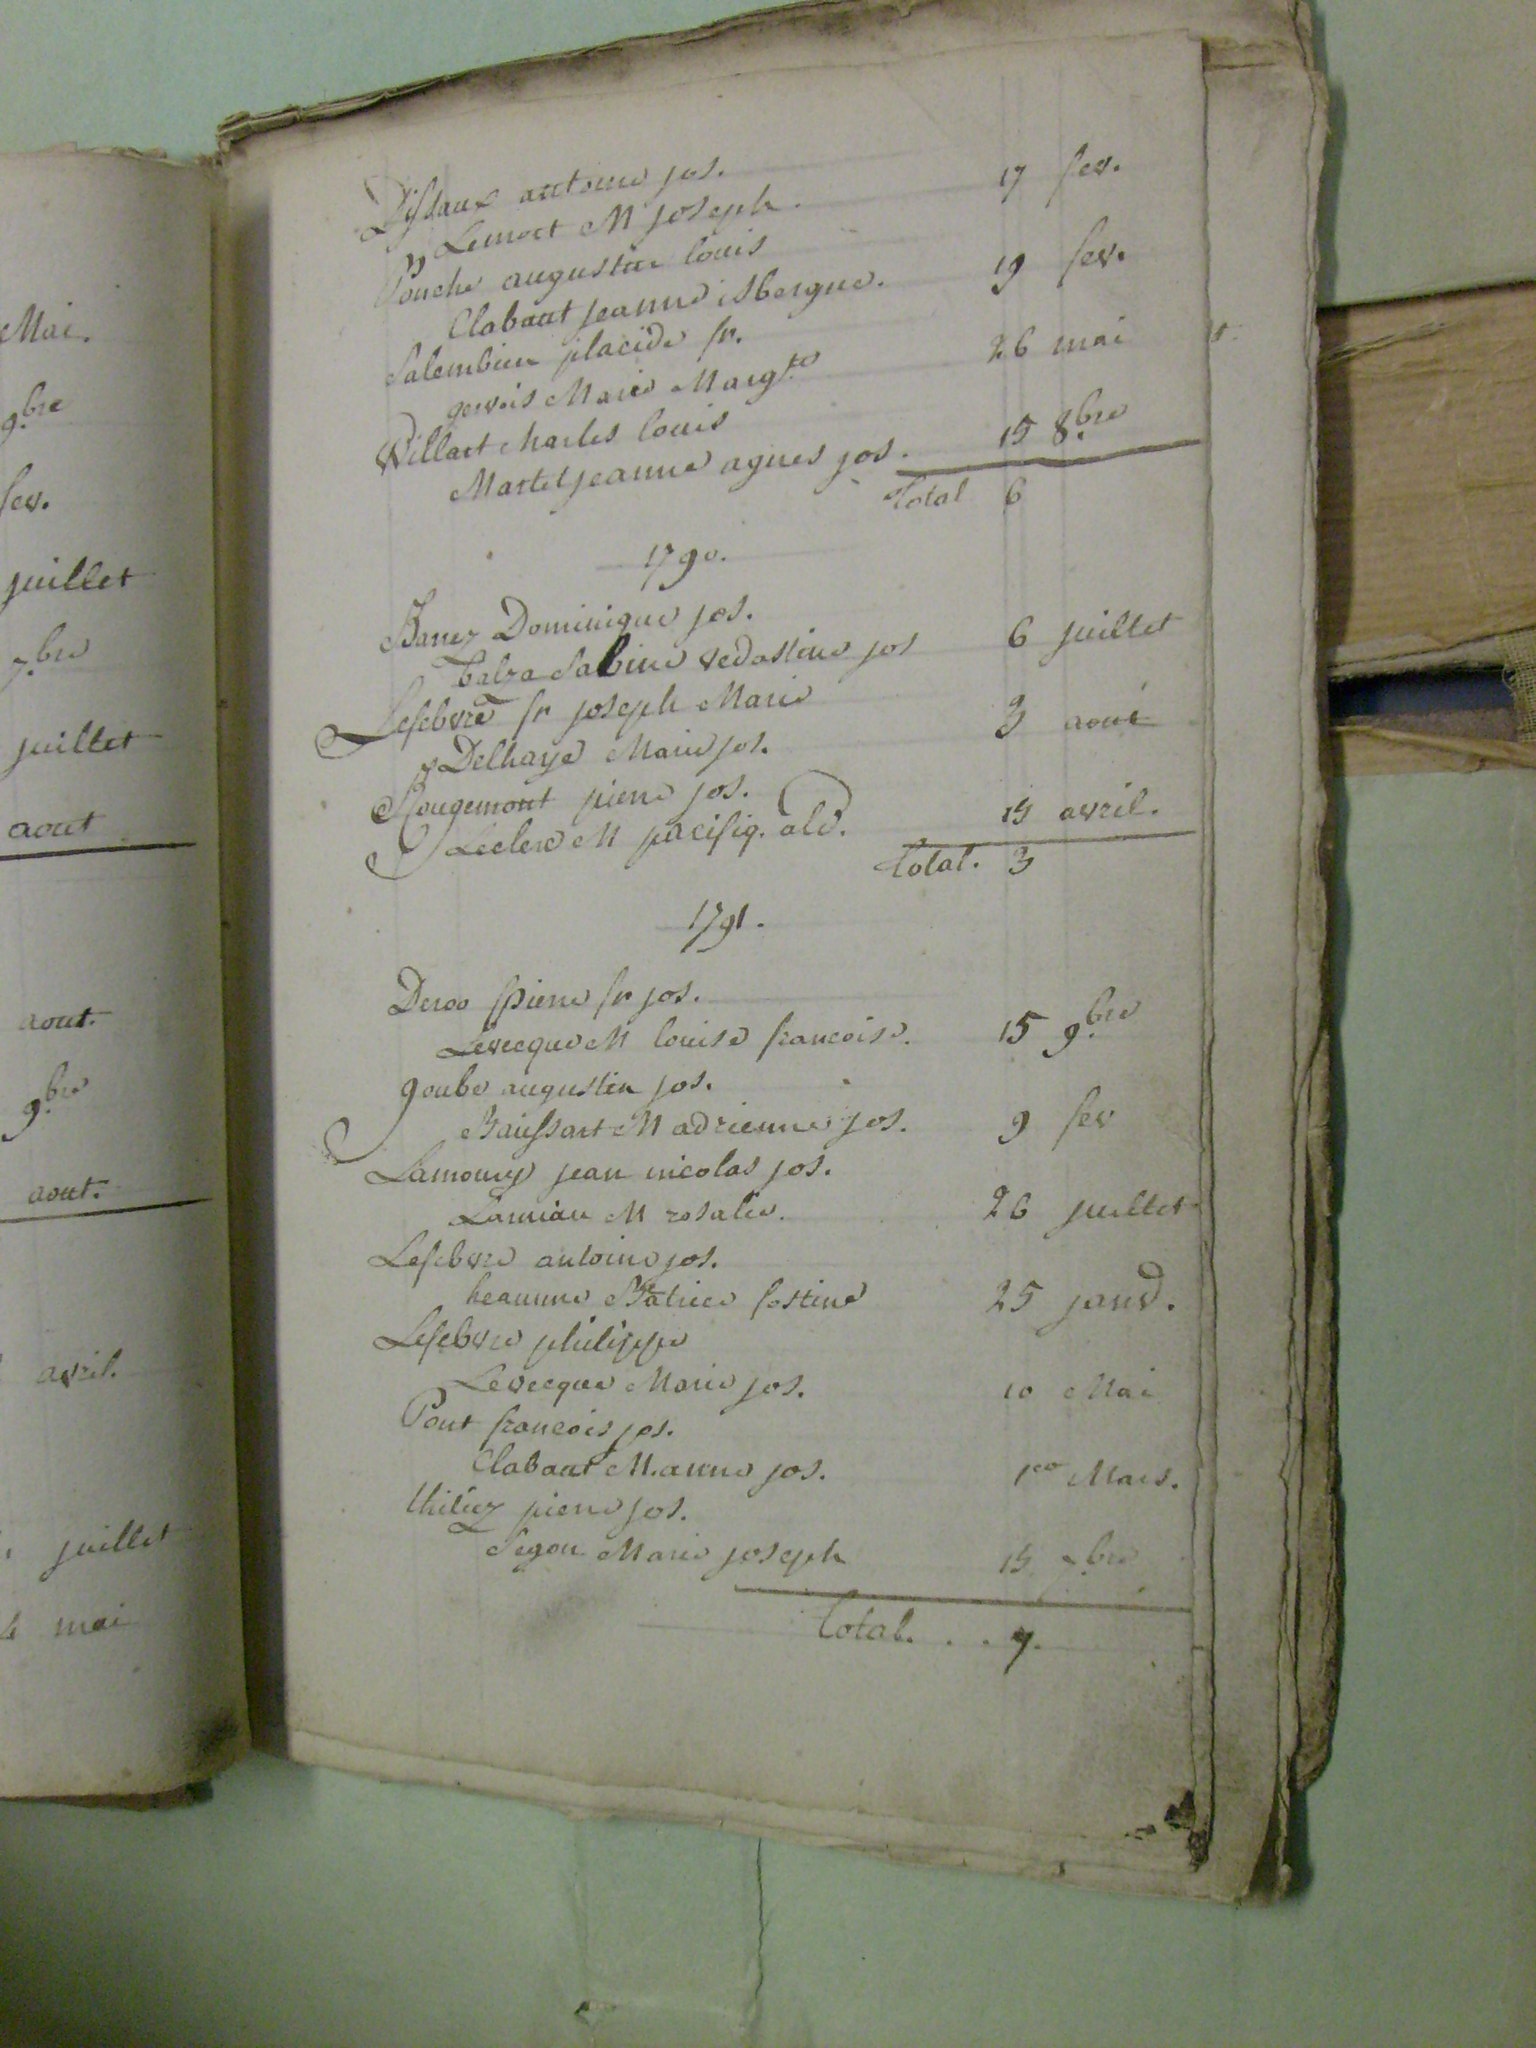 Mai.
9.bre
fev.
juillet
7.bre
juillet
aout
aout.
9.bre
aout.
avril.
juillet
mai
Dissaux antoine jos.
Lemort M joseph. 17 fev.
Pouche augustin louis
Clabaut jeanne isbergue. 19 fev.
Salembien placide fr.
gervois Marie Marg.te 26 mai
Willart Charles louis
Martel jeanne agnes jos. 15 8.bre
Total 6
1790.
Banez Dominique jos.
Calza Sabine vedastine jos 6 juillet
Lefebvre fr joseph Marie
Delhaye Marie jos. 3 aout
Rougemont pierre jos.
Leclerc M pacifiq. ald. 15 avril.
Total. 3
1791.
Deroo pierre fr jos.
Levecque M louise francoise. 15 9.bre
goube augustin jos.
Baissart M adrienne jos. 9 fev
Lamoury jean nicolas jos.
Lamiau M rosalie. 26 juillet
Lefebvre antoine jos.
heaume Batrice festine 25 janv.
Lefebvre philippe
Levecque Marie jos. 10 Mai
Pont francois jos.
Clabaut M. anne jos. 1er Mars.
thiliez pierre jos.
Segon Marie joseph 15 7.bre
Total. . . 7.